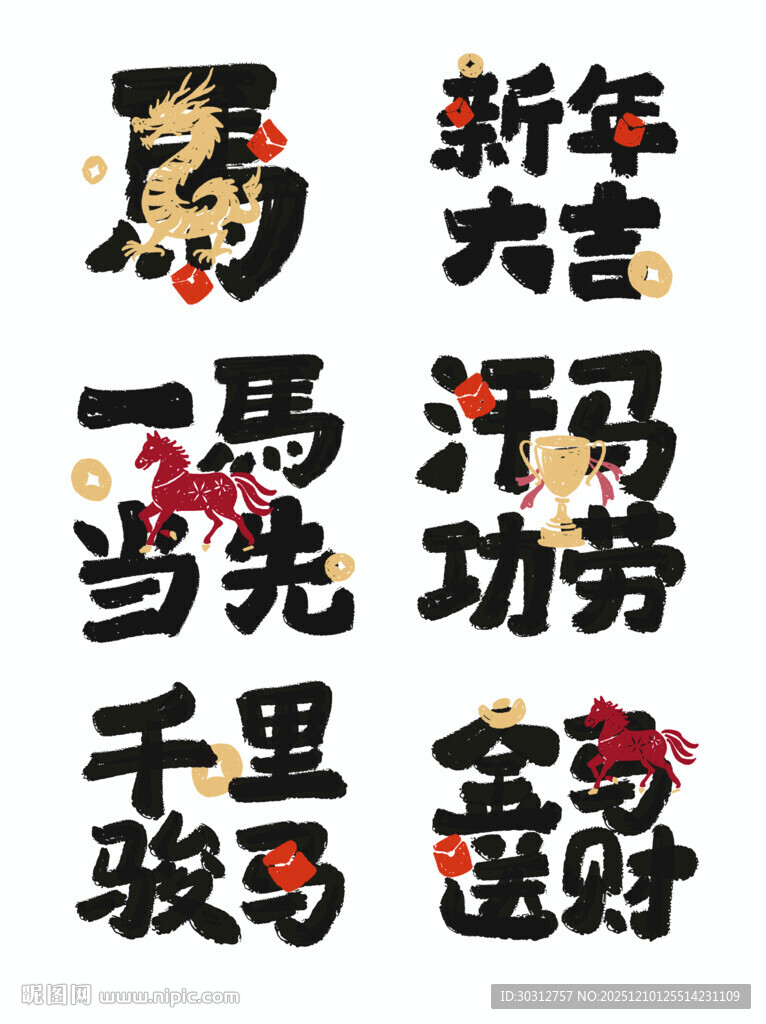 馬
新年
大吉
一馬
当先
汗马
功劳
千里
骏马
金马
送财
昵图网 www.nipic.com
ID:30312757 NO:20251210125514231109